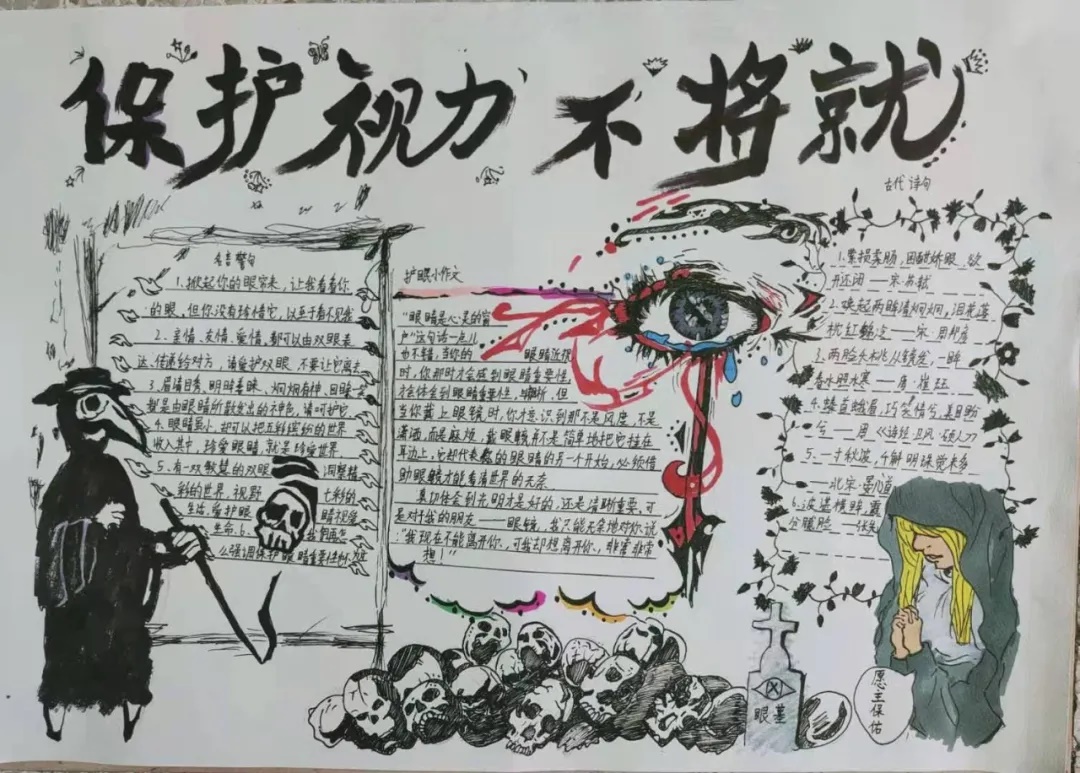 保护视力不将就
名言警句
1.掀起你的眼帘来,让我看看你
的眼,但你没有珍惜它,以至于看不见我
2.亲情、友情、爱情,都可以由双眼表
达、传递给对方,请爱护双眼,不要让它离去
3.眉清目秀、明眸善睐、炯炯有神、回眸一笑
都是由眼睛所散发出的神色,请呵护它
4.眼睛虽小,却可以把五彩缤纷的世界
收入其中,珍爱眼睛,就是珍爱世界
5.有一双敏慧的双眼 洞察精
彩的世界,视野 七彩的
生活,爱护眼 睛视爱
生命.6. 我
么强调保护眼睛重要性
护眼小作文
“眼睛是心灵的窗
户”这句话一点儿
也不错,当你的 眼睛近视
时,你那时才会感到眼睛重要性,
才会体会到眼睛重要性.
当你戴上眼镜时,你才意识到那不是风度、不是
潇洒,而是麻烦.戴眼镜并不是简单地把它挂在
耳边上,它却代表您的眼睛的另一个开始,必须借
助眼镜才能看清世界的无奈
真切体会到失明才是好的,还是清晰重要,可
是对于我的朋友——眼镜,我只能无奈地对你说
:“我现在不能离开你、可我却想离开你、非常非常
想!”
古代诗句
1.萦损柔肠,困酣娇眼,欲
开还闭——宋·苏轼
2.唤起两眸清炯炯,泪花落
枕红绵冷——宋·周邦彦
3.两脸夭桃从镜发,一眸
春水照人寒——唐·崔珏
4.螓首蛾眉,巧笑倩兮,美目盼
兮——周《诗经·卫风·硕人》
5.一寸秋波,千斛明珠觉未多
——北宋·晏几道
6.
眼墓
愿主保佑